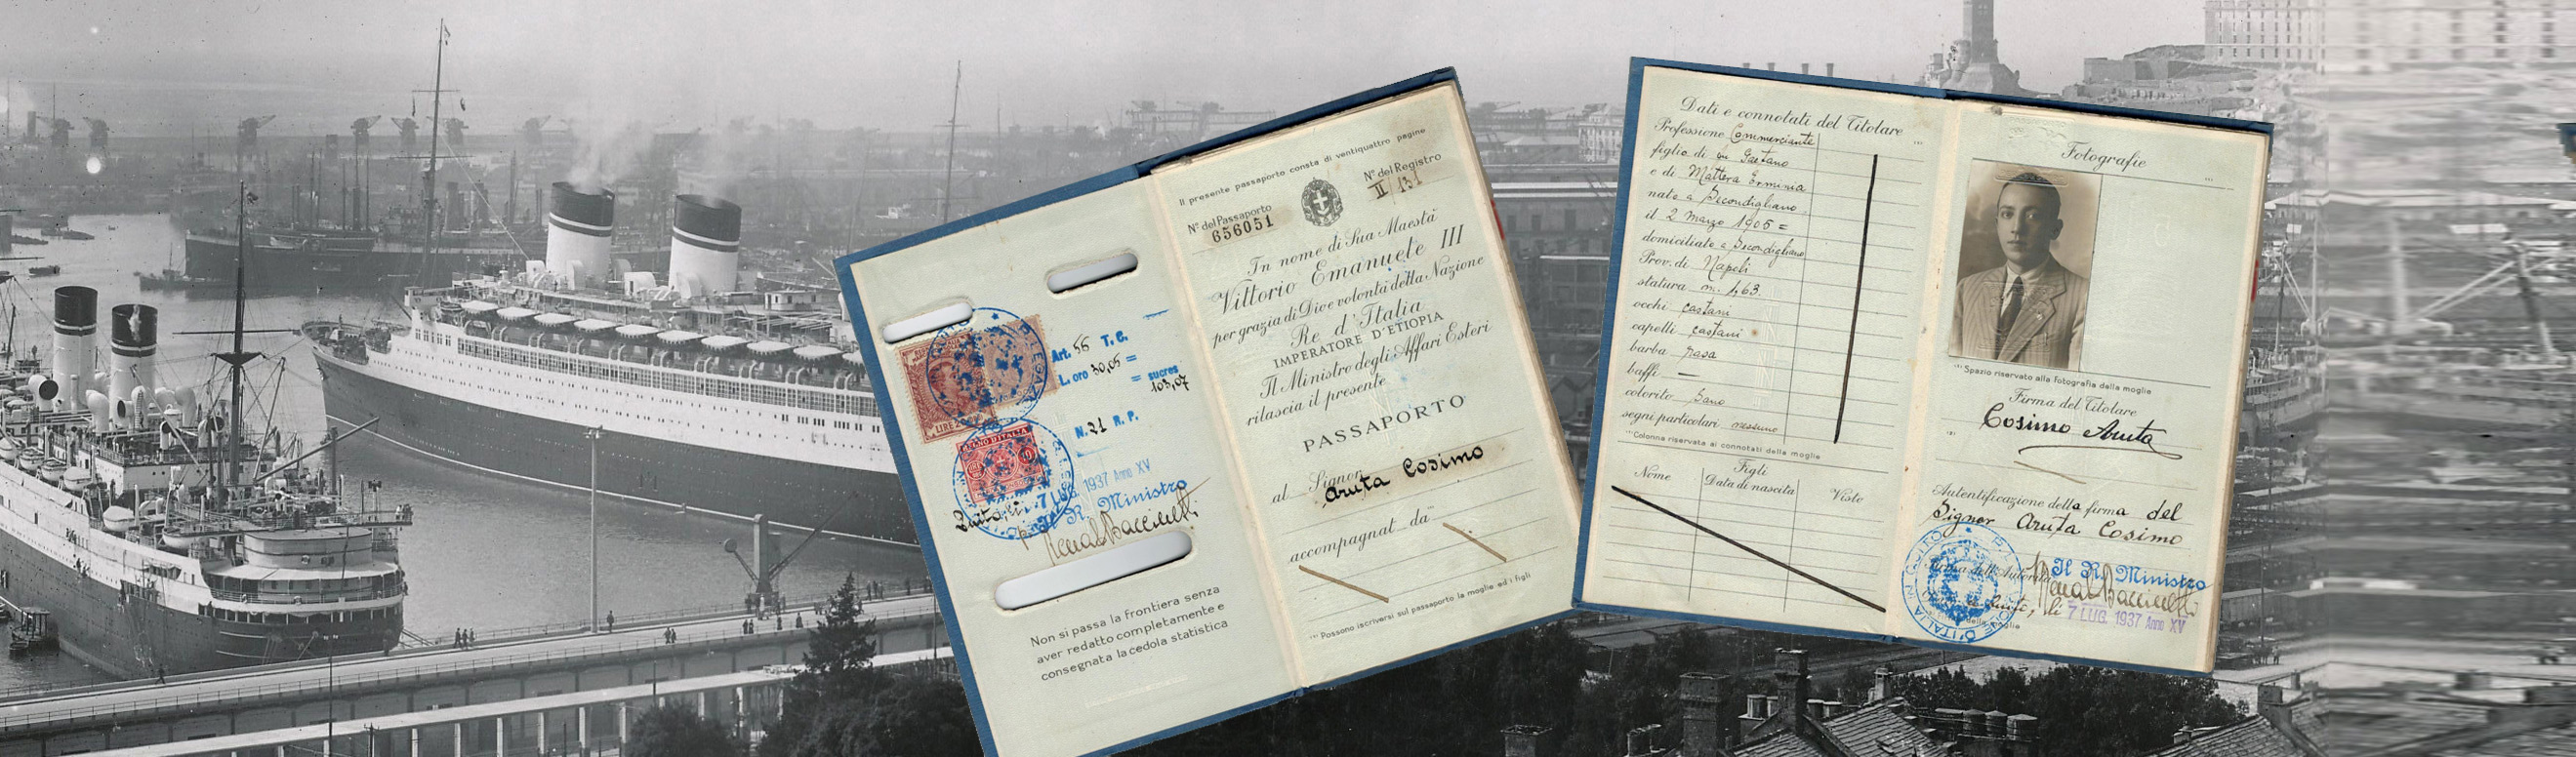 Art. 56 T. C.
L. oro 30,05 =
= sucres
103,07
N. 21 R. P.
LIRE
REGNO D'ITALIA
7 LUG. 1937 Anno XV
Il R. Ministro
Non si passa la frontiera senza
aver redatto completamente e
consegnata la cedola statistica
Il presente passaporto consta di ventiquattro pagine
N° del Passaporto
656051
N° del Registro
II 131
In nome di Sua Maestà
Vittorio Emanuele III
per grazia di Dio e volontà della Nazione
Re d'Italia
IMPERATORE D'ETIOPIA
Il Ministro degli Affari Esteri
rilascia il presente
PASSAPORTO
al Signor
Aruta Cosimo
accompagnat da
Possono iscriversi sul passaporto la moglie ed i figli
Dati e connotati del Titolare
Professione Commerciante
figlio di fu Gaetano
e di Mattera Erminia
nato a Secondigliano
il 2 Marzo 1905 =
domiciliato a Secondigliano
Prov. di Napoli
statura m. 1,63.
occhi castani
capelli castani
barba rasa
baffi —
colorito sano
segni particolari nessuno
Colonna riservata ai connotati della moglie
Figli
Nome Data di nascita Visto
Fotografie
Spazio riservato alla fotografia della moglie
Firma del Titolare
Cosimo Aruta
Autentificazione della firma del
Signor Aruta Cosimo
Il R. Ministro
Quito, li 7 LUG. 1937 Anno XV
della moglie